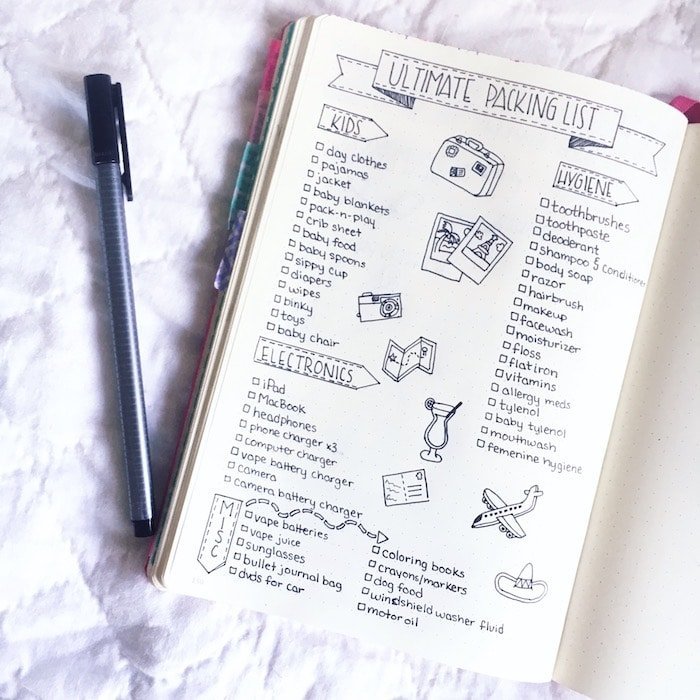 ULTIMATE PACKING LIST
KIDS
day clothes
pajamas
jacket
baby blankets
pack-n-play
crib sheet
baby food
baby spoons
sippy cup
diapers
wipes
binky
toys
baby chair
ELECTRONICS
iPad
MacBook
headphones
phone charger x3
computer charger
vape battery charger
camera
camera battery charger
HYGIENE
toothbrushes
toothpaste
deoderant
shampoo & conditioner
body soap
razor
hairbrush
makeup
facewash
moisturizer
floss
flatiron
vitamins
allergy meds
tylenol
baby tylenol
mouthwash
femenine hygiene
MISC
vape batteries
vape juice
sunglasses
bullet journal bag
dvds for car
coloring books
crayons/markers
dog food
windshield washer fluid
motor oil